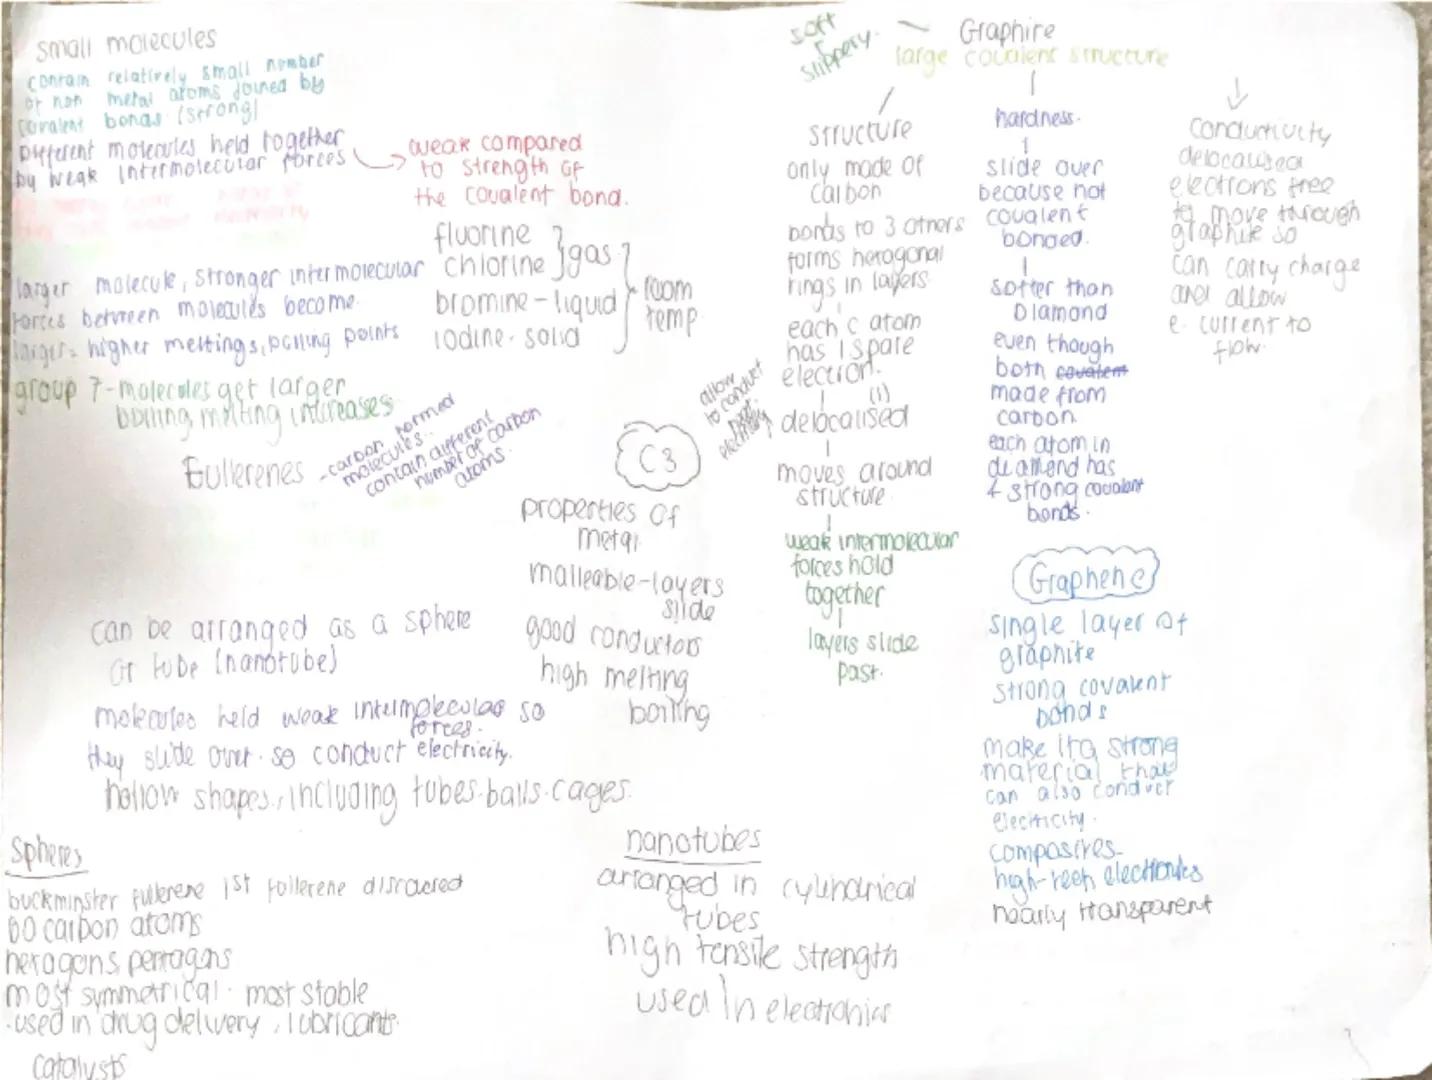 small molecules
contain relatively small number
of non metal atoms joined by
covalent bonds (strong)
Different molecules held together
by weak intermolecular forces
weak compared
to strength of
the covalent bond.
larger molecule, stronger intermolecular
forces between molecules become
larger = higher meltings, boiling points
group 7 - molecules get larger
boiling, melting increases
fluorine
chlorine } gas
bromine - liquid
iodine - solid
room
temp.
Fullerenes
- carbon formed
molecules..
contain different
number of carbon
atoms.
C3
can be arranged as a sphere
or tube (nanotube)
molecules held weak intermolecular so
forces.
they slide over. so conduct electricity.
hollow shapes, including tubes. balls. cages.
properties of
metal
malleable - layers
slide
good conductors
high melting
boiling
Spheres
buckminster fullerene 1st fullerene discovered
60 carbon atoms
hexagons, pentagons
most symmetrical. most stable
.used in drug delivery, lubricants.
catalysts
nanotubes
arranged in cylindrical
tubes
high tensile strength
used in electronics
soft
slippery.
Graphire
large covalent structure
structure
only made of
carbon
bonds to 3 others
forms hexagonal
rings in layers
each c atom
has 1 spare
electron.
(1)
delocalised
allow
to conduct
electricity
moves around
structure
weak intermolecular
forces hold
together
layers slide
past.
hardness.
slide over
because not
covalent
bonded.
softer than
Diamond
even though
both covalent
made from
carbon
each atom in
diamond has
4 strong covalent
bonds.
conductivity
delocalised
electrons free
to move through
graphite so
can carry charge
and allow
e. current to
flow.
Graphene
single layer of
graphite
strong covalent
bonds
make it a strong
material that
can also conduct
electricity.
composites-
high-tech electronics
nearly transparent